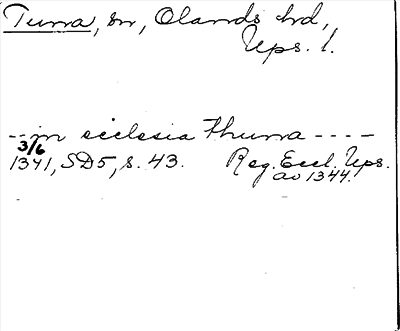 Tuna, sn, Olands hd,
Ups. l.
-- in ecclesia Thuna ----
3/6
1341, SD5, s. 43. Reg. Eccl. Ups.
av 1344.